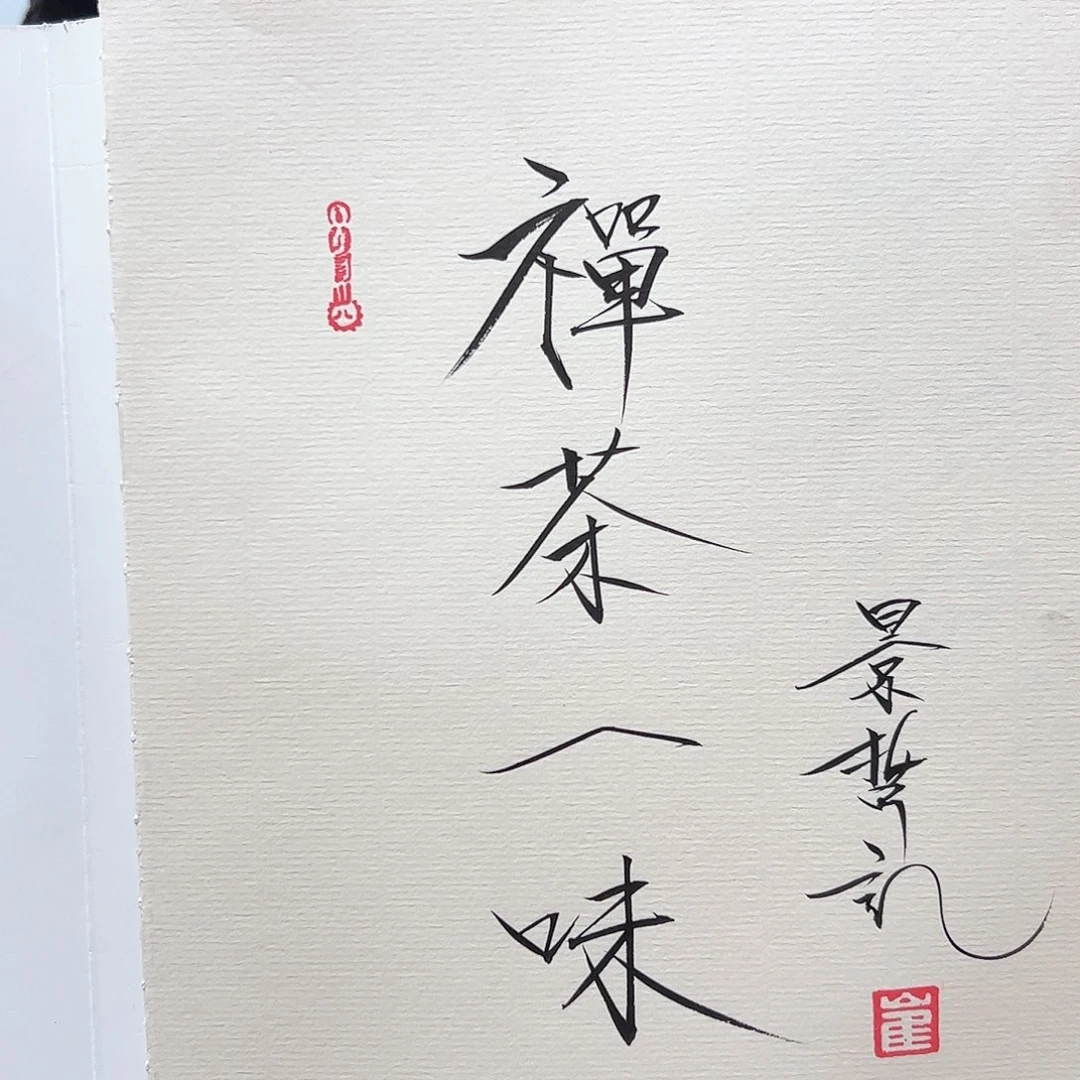 禪茶一味
景哲記
崔